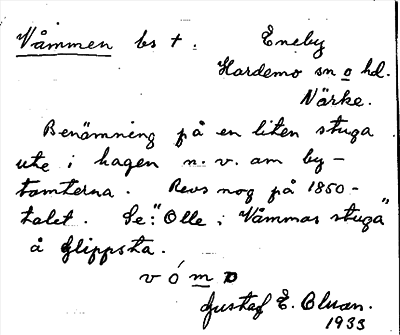 Våmmen bs †. Eneby
Hardemo sn o hd.
Närke.
Benämning på en liten stuga
ute i hagen n. v. om by-
tomterna. Revs nog på 1850-
talet. Se: "Olle i Våmmas stuga"
å Glippsta.
v ó m
Gustaf E. Olsson.
1933